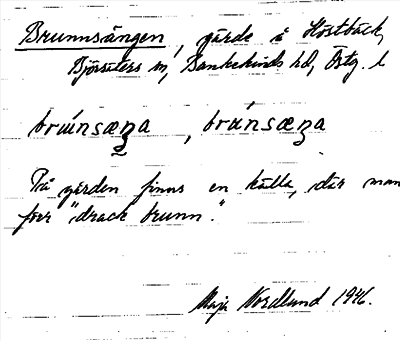 Brunnsängen, gärde å Höstbäck,
Björsäters sn, Bankekinds hd, Östg. l
brúnsæŋa, brúnsæŋa
På gärden finns en källa, där man
förr "drack brunn."
Maja Nordlund 1946.